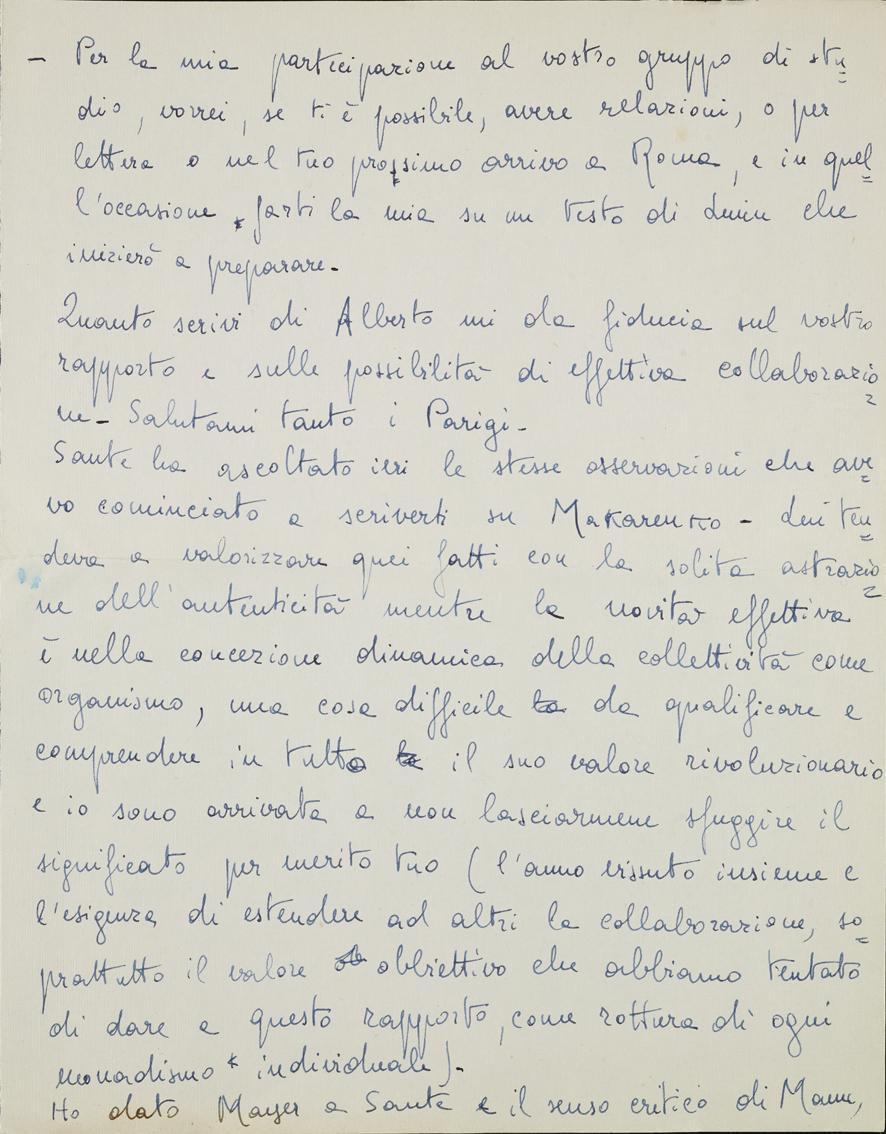 - Per la mia partecipazione al vostro gruppo di stu=
dio, vorrei, se ti è possibile, avere relazioni, o per
lettera o nel tuo prossimo arrivo a Roma, e in quel=
l'occasione farti la mia su un testo di Lenin che
inizierò a preparare-
Quanto scrivi di Alberto mi da fiducia sul vostro
rapporto e sulle possibilità di effettiva collaborazio=
ne- Salutami tanto i Parigi-
Sante ha ascoltato ieri le stesse osservazioni che ave=
vo cominciato a scriverti su Makarenko - Lui ten=
deva a valorizzare quei fatti con la solita astrazio=
ne dell'autenticità mentre la novità effettiva
è nella concezione dinamica della collettività come
organismo, una cosa difficile la da qualificare e
comprendere in tutto il suo valore rivoluzionario
e io sono arrivata a non lasciarmene sfuggire il
significato per merito tuo (l'anno vissuto insieme e
l'esigenza di estendere ad altri la collaborazione, so=
prattutto il valore ob obbiettivo che abbiamo tentato
di dare a questo rapporto, come rottura di ogni
monadismo individuale).
Ho dato Mayer a Sante e il senso critico di Mann,